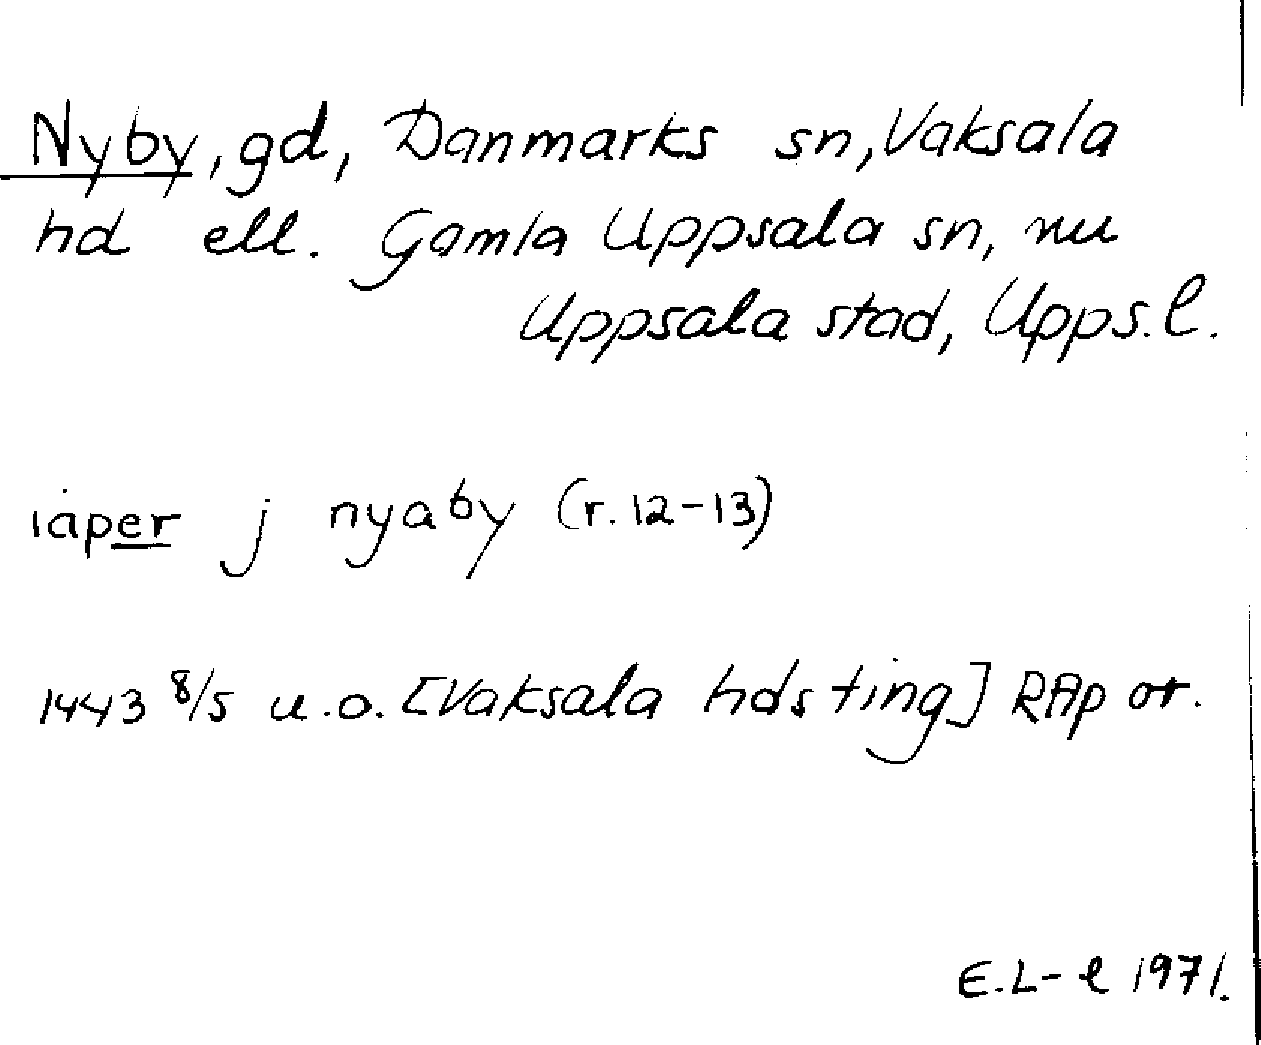 Nyby, gd, Danmarks sn, Vaksala
hd ell. Gamla Uppsala sn, nu
Uppsala stad, Upps. l.
iaper j nyaby (r. 12-13)
1443 8/5 u.o. [Vaksala hds ting] RAp or.
E.L-l 1971.